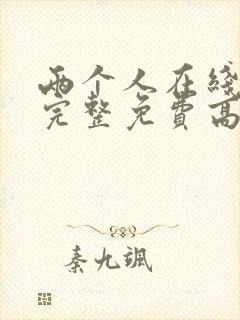 两个人在线
完整免费高
秦九飒